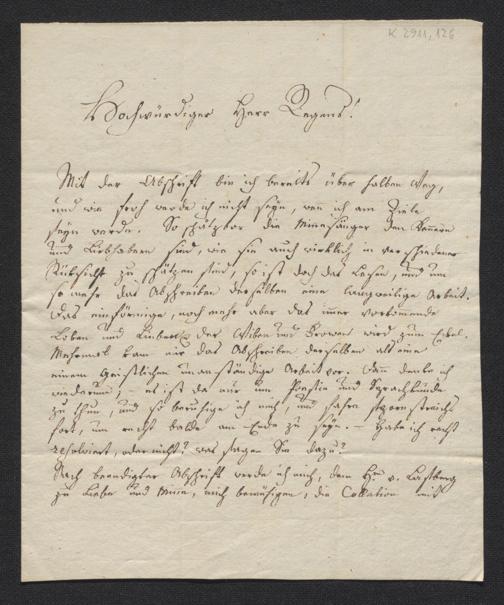 K 2911, 126
Hochwürdiger Herr Regens!
Mit der Abschrift bin ich bereits über halben Weg,
und wie froh werde ich nicht seyn, wen ich am Ziele
seyn werde. So schätzbar die Minesänger den Kennern
und Liebhabern sind, wie sie auch wirklich in verschiedener
Rücksicht zu schätzen sind, so ist doch das Lesen, und um
so mehr das Abschreiben derselben eine langweilige Arbeit.
Das einförmige, noch mehr aber das imer vorkomende
Loben und der Wiben und Frowen wird zum Eckel.
Mehrmal kam mir das Abschreiben derselben als eine
einem Geistlichen unanständige Arbeit vor. Dan denke ich
wiederum, es ist da nur um Poesie und Sprachkunde
zu thun, und so beruhige ich mich, und fahre
fort, um recht balde am Ende zu seyn. – Habe ich recht
resolviert, oder nicht? was sagen Sie dazu?
Nach beendigter Abschrift werde ich mich, dem Hn. v. Laßberg
zu Liebe und Minne, mich bemüssigen, die Collation mit